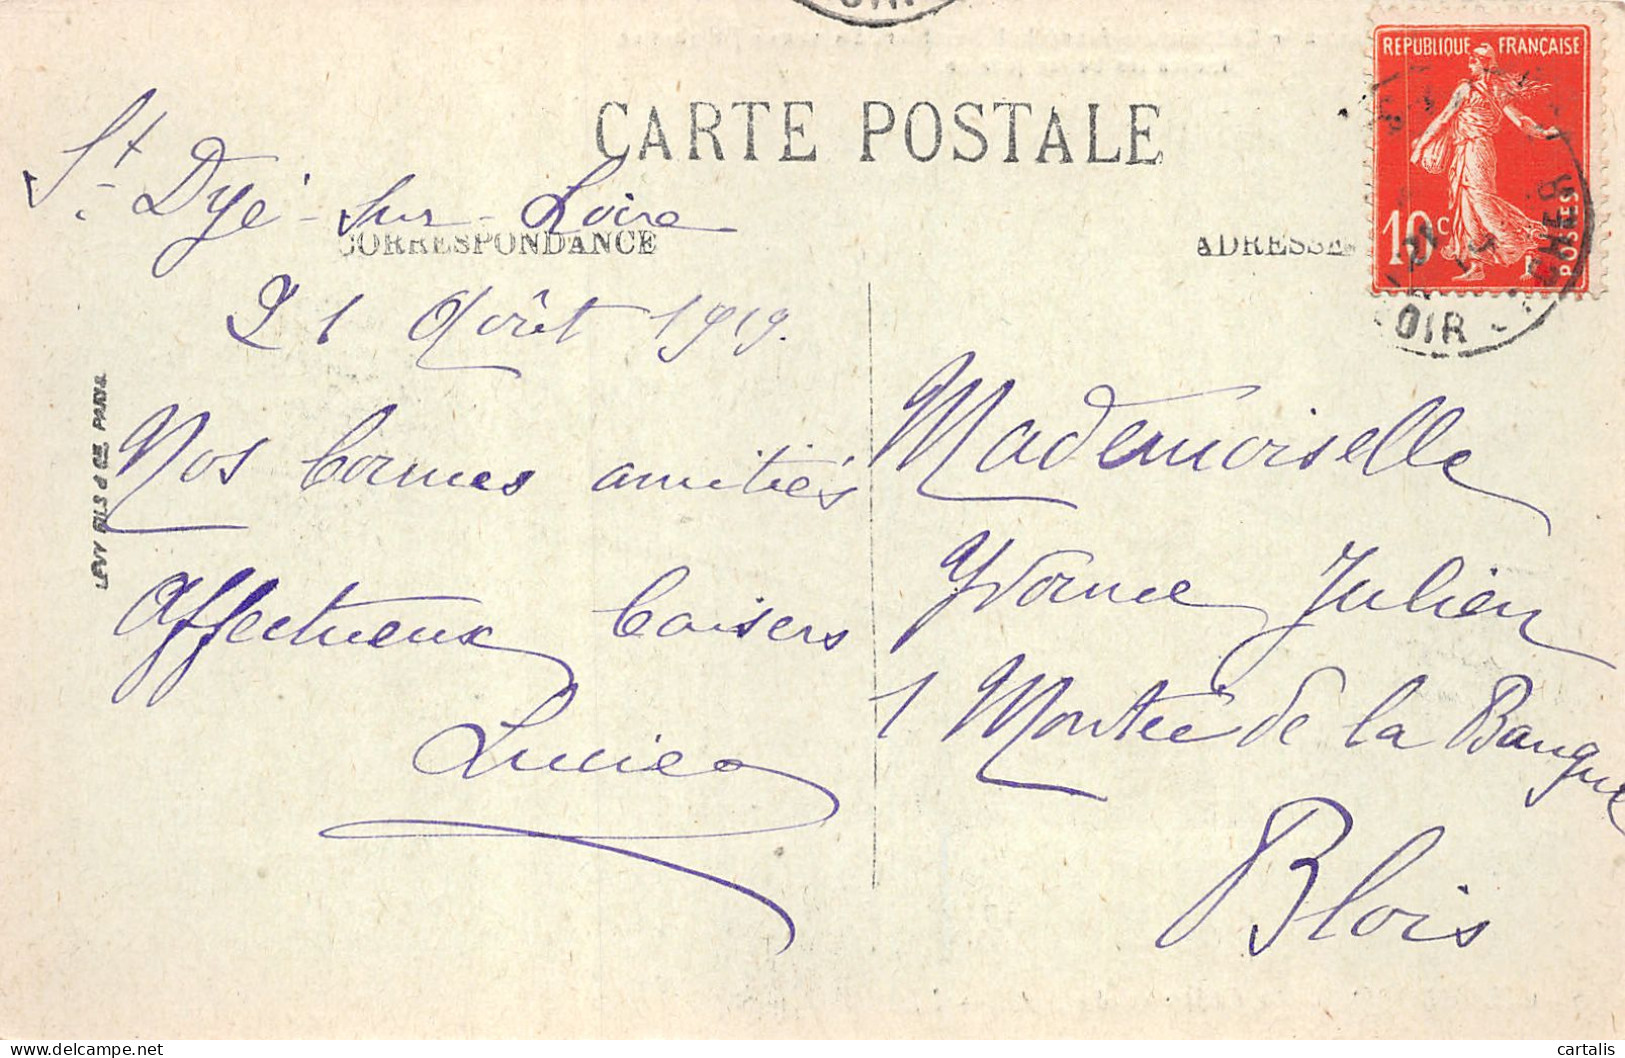 CARTE POSTALE
CORRESPONDANCE
ADRESSE
RÉPUBLIQUE FRANÇAISE
10c
POSTES
CHER
OIR
St Dyé-sur-Loire
21 Août 1919.
Nos bonnes amitiés
Affectueux baisers
Lucie
Mademoiselle
Yvonne Julien
1 Montée de la Banque
Blois
LÉVY FILS & CIE, PARIS
cartalis